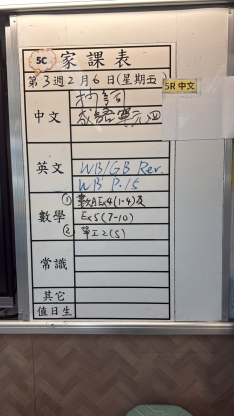 5C 家課表
第3週2月6日(星期五)
5R 中文
中文
成語單元四
英文
WB/GB Rev.
WB P.15
數學
① 數月Ex4(1-4)及
Ex5(7-10)
② 單工2(5)
常識
其它
值日生